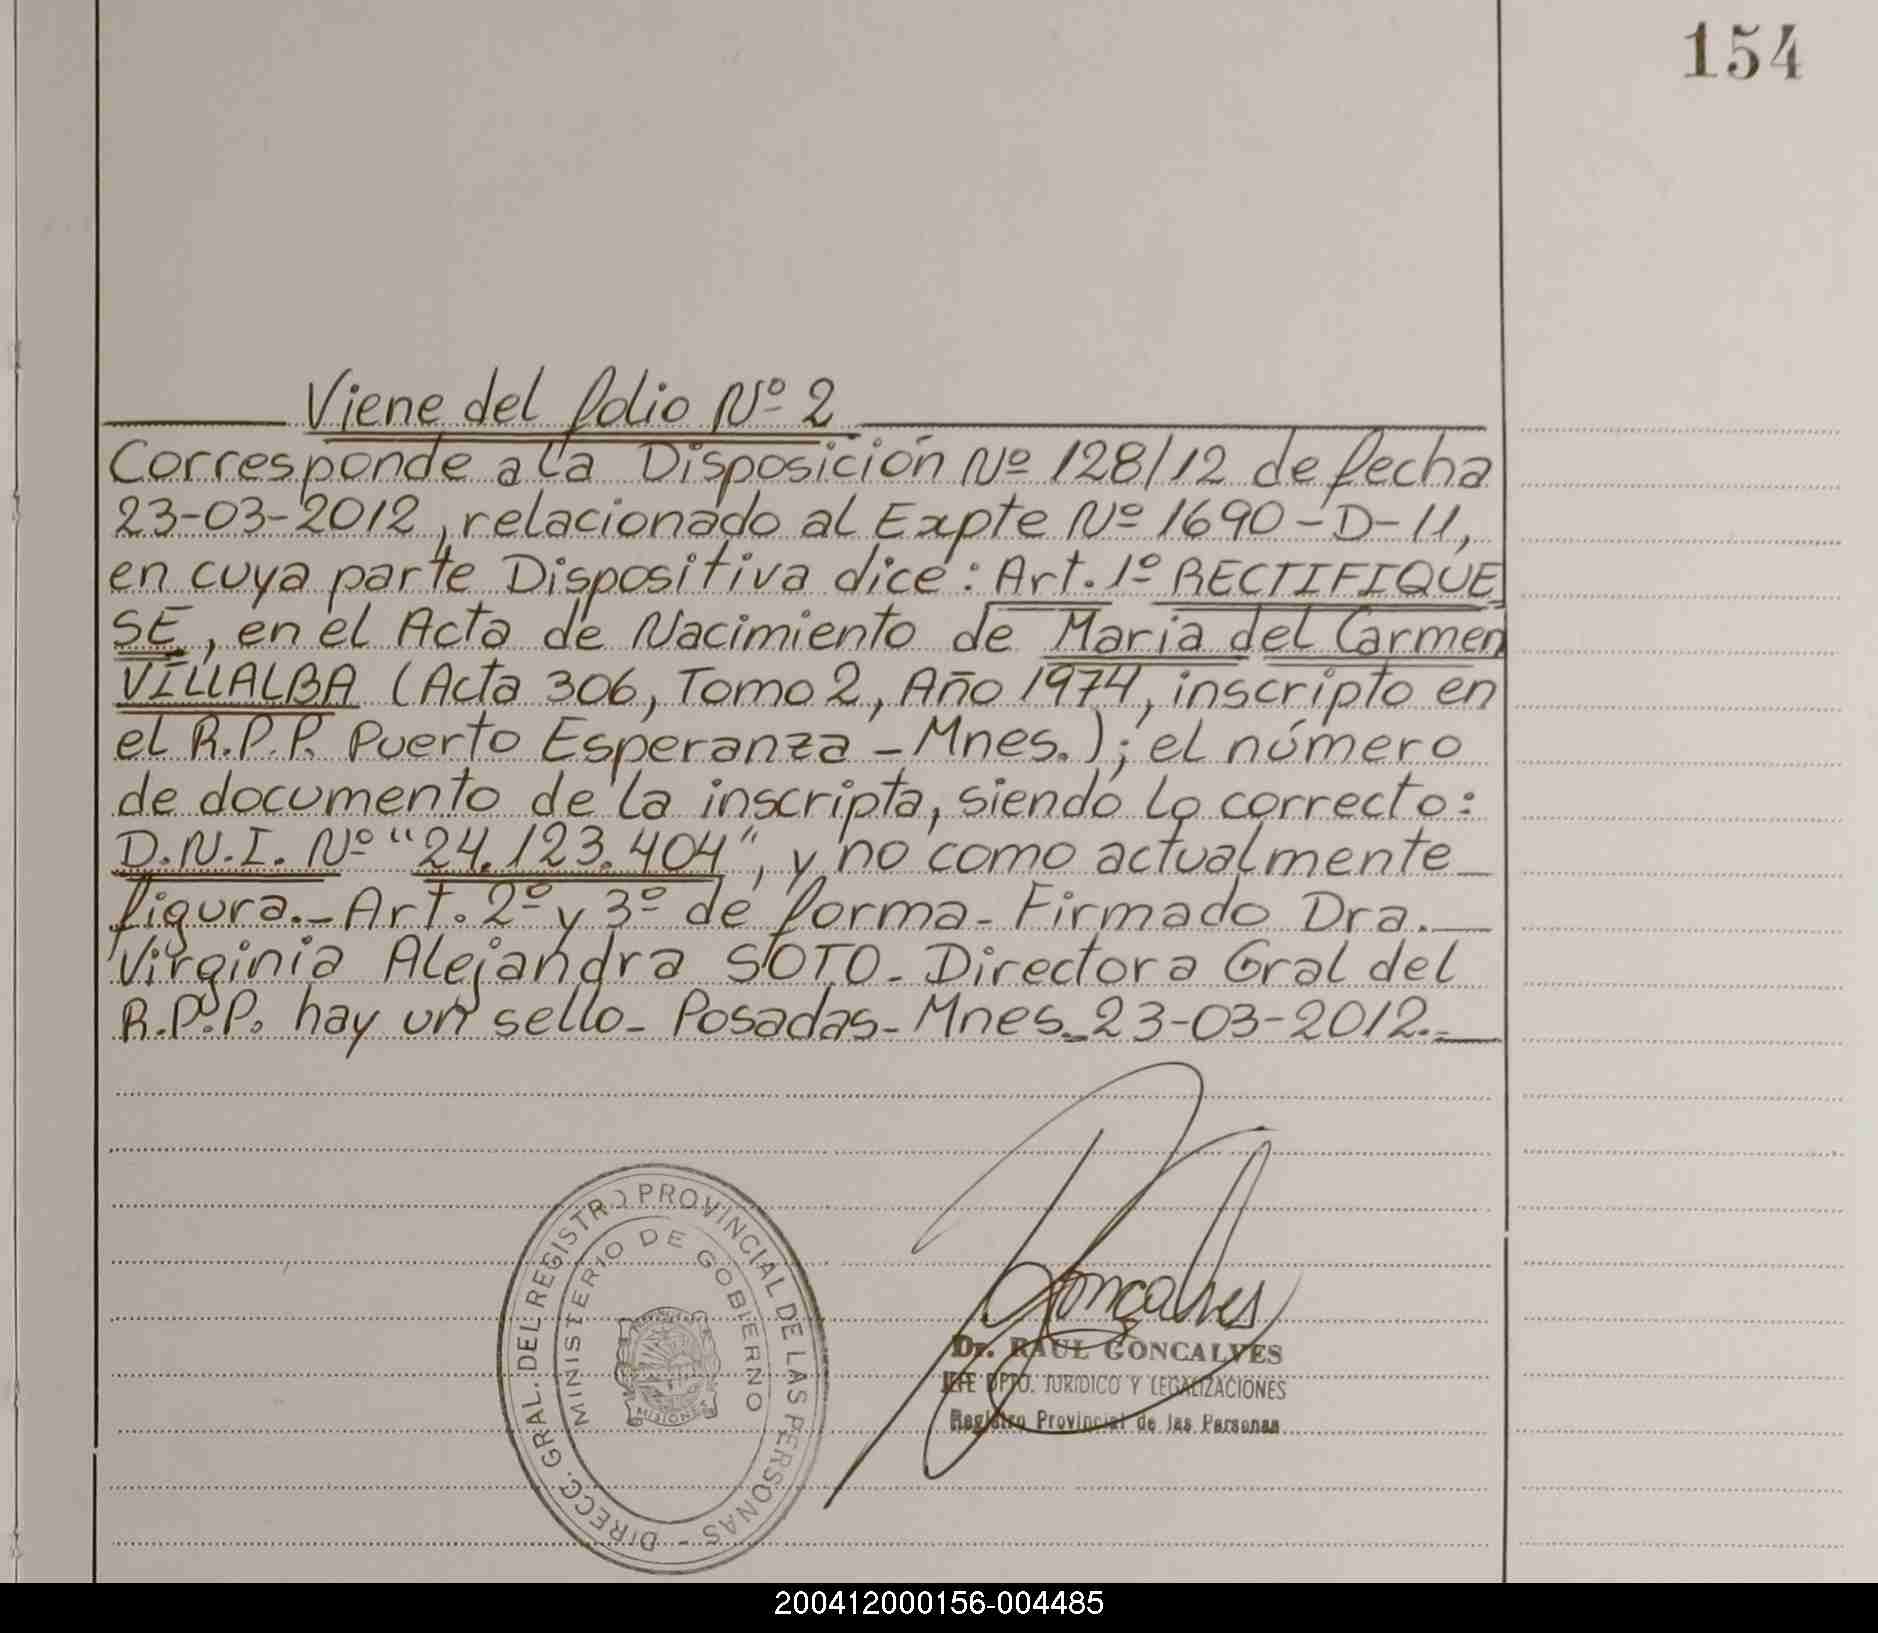 154
Viene del folio Nº 2
Corresponde a la Disposición Nº 128/12 de fecha
23-03-2012, relacionado al Expte Nº 1690-D-11,
en cuya parte Dispositiva dice: Art. 1º RECTIFIQUE
SE, en el Acta de Nacimiento de Maria del Carmen
VILLALBA (Acta 306, Tomo 2, Año 1974, inscripto en
el R.P.P. Puerto Esperanza - Mnes.); el número
de documento de la inscripta, siendo lo correcto:
D.N.I. Nº "24.123.404", y no como actualmente
figura.- Art. 2º y 3º de forma- Firmado Dra.
Virginia Alejandra SOTO- Directora Gral del
R.P.P. hay un sello- Posadas- Mnes. 23-03-2012.-
DIRECC. GRAL. DEL REGISTRO PROVINCIAL DE LAS PERSONAS -
MINISTERIO DE GOBIERNO
MISIONES
Gonçalves
Dr. RAUL GONCALVES
JEFE DPTO. JURIDICO Y LEGALIZACIONES
Registro Provincial de las Personas
200412000156-004485